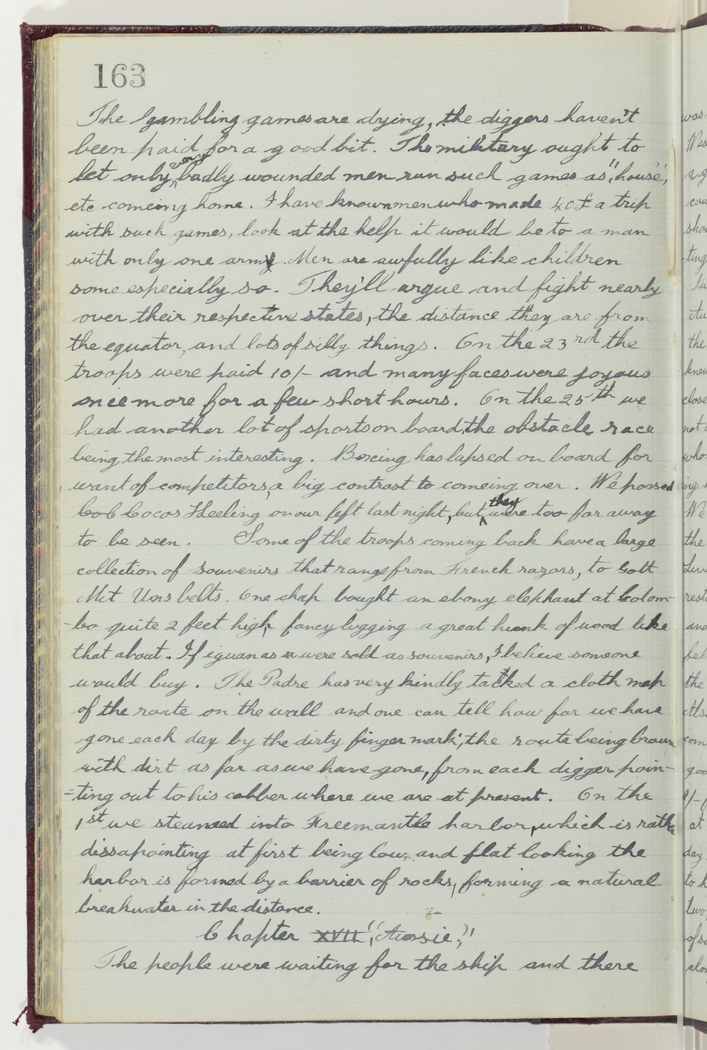 163
The gambling games are dying, the diggers haven't
been paid for a good bit. The military ought to
let only very badly wounded men run such games as "house",
etc comeing home. I have known men who made 40£ a trip
with such games, look at the help it would be to a man
with only one arm. Men are awfully like children
some especially so. They'll argue and fight nearly
over their respective states, the distance they are from
the equator, and lots of silly things. On the 23rd the
troops were paid 10/- and many faces were joyous
once more for a few short hours. On the 25th we
had another lot of sports on board, the obstacle race
being the most interesting. Boxing has lapsed on board for
want of competitors, a big contrast to comeing over. We passed
Cocos Keeling on our left last night, but they were too far away
to be seen. Some of the troops coming back have a large
collection of souvenirs that range from French razors, to Gott
Mit Uns belts. One chap bought an ebony elephant at Colom-
-bo quite 2 feet high, fancy lugging a great hunk of wood like
that about. If iguanas were sold as souvenirs, I believe someone
would buy. The Padre has very kindly tacked a cloth map
of the route on the wall and one can tell how far we have
gone each day by the dirty finger mark; the route being brown
with dirt as far as we have gone, from each digger poin-
-ting out to his cobber where we are at present. On the
1st we steamed into Freemantle harbor, which is rather
dissapointing at first being low, and flat looking the
harbor is formed by a barrier of rocks, forming a natural
breakwater in the distance.
Chapter XVII "Aussie"
The people were waiting for the ship and there